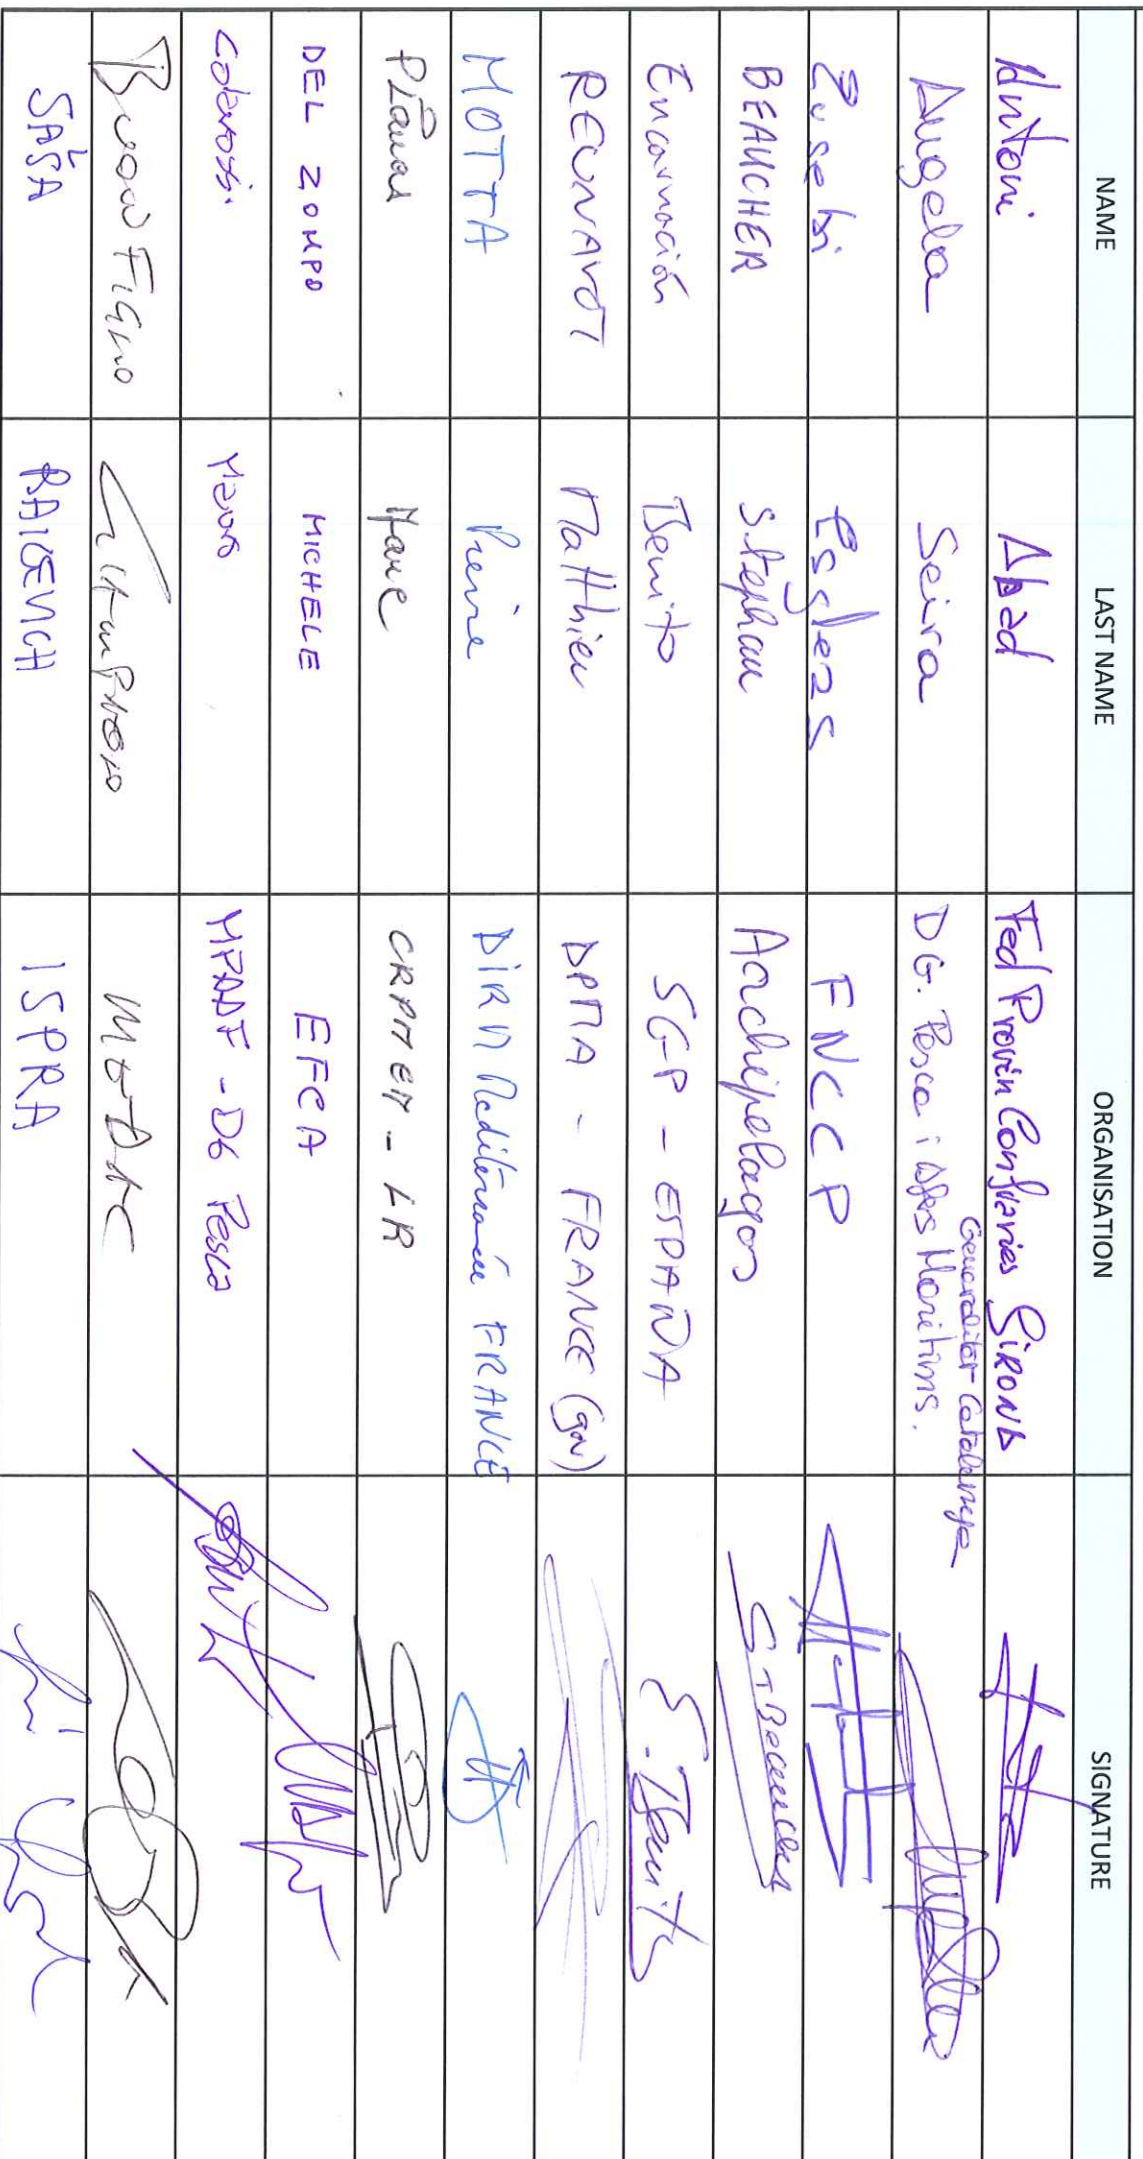 NAME LAST NAME ORGANISATION SIGNATURE
Antoni Abad Fed Provin Confraries GIRONA
Angela Seira DG. Pesca i Afers Marítims. Generalitat Catalunya
Eusebi Esgleas FNCCP
BEAUCHER Stéphan Archipelagos S. Beaucher
Encarnación Benito SGP - ESPAÑA E. Benito
REUNAVOT Matthieu DPMA - FRANCE (gov)
MOTTA Pierre DIRM Méditerranée FRANCE
Planas Marc CRPMEM - LR
DEL ZOMPO MICHELE EFCA
Colarossi Mauro MPAAF - DG Pesca
Buonfiglio Giampaolo MEDAC
SAŠA RAICEVICH ISPRA